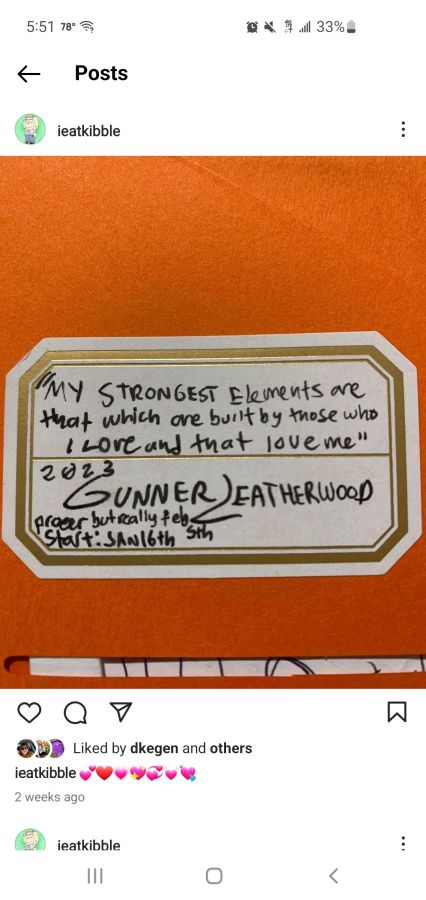 5:51 78°
33%
Posts
ieatkibble
"MY STRONGEST Elements are
that which are built by those who
I Love and that love me"
2023
GUNNER LEATHERWOOD
proper but really feb 5th
Start: JAN 16th
Liked by dkegen and others
ieatkibble 💕❤️💗💖💞💗💘
2 weeks ago
ieatkibble